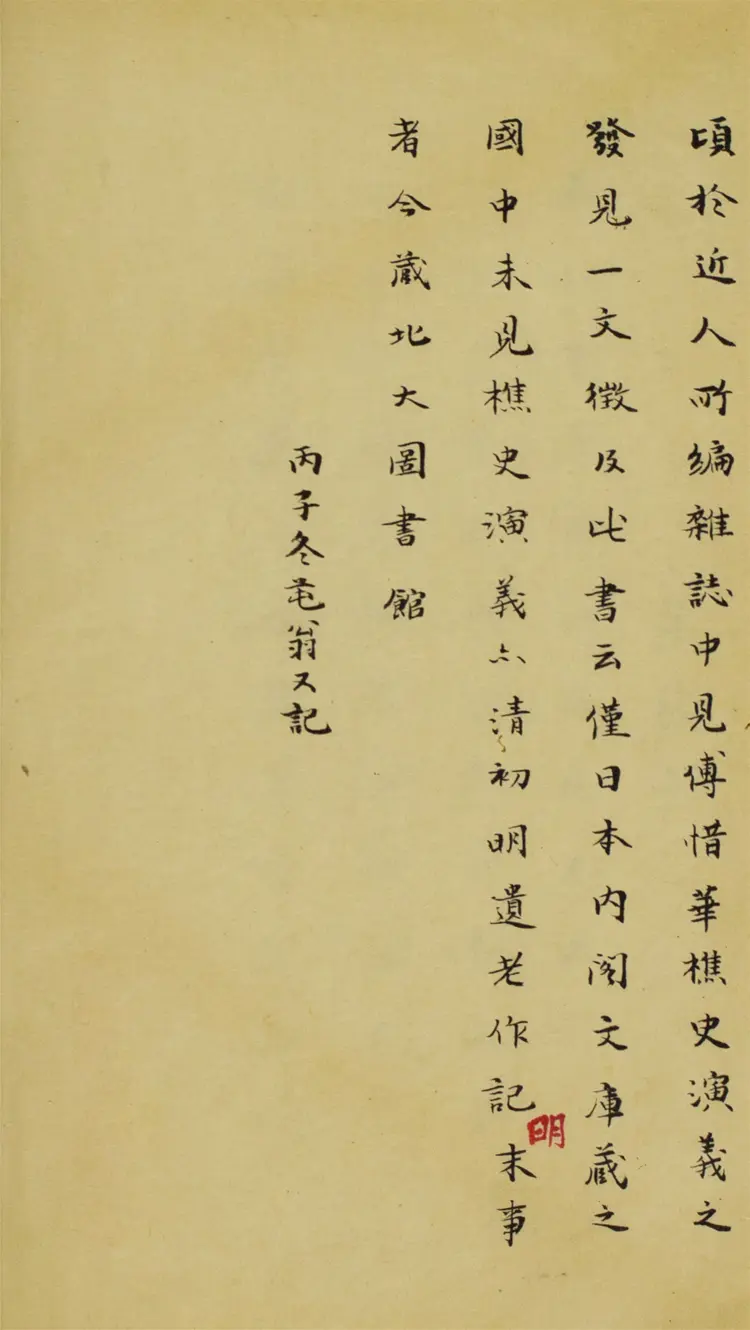 頃於近人所編雜誌中見傅惜華樵史演義之
發見一文徵及此書云僅日本内閣文庫蔵之
國中未見樵史演義亦清初明遺老作記明末事
者今蔵北大圖書館
丙子冬芚翁又記